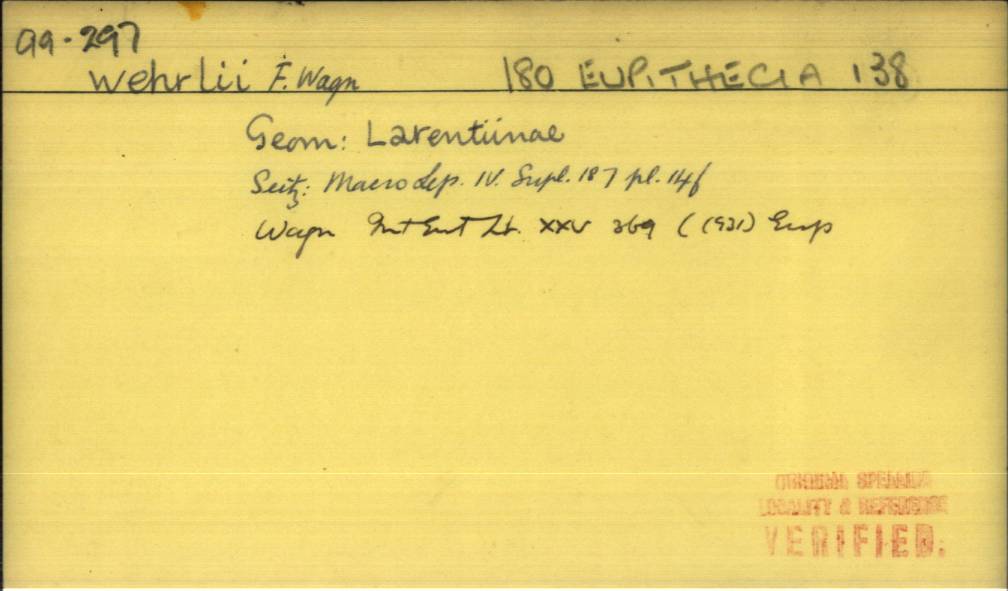 99.297
wehrlii F. Wagn 180 EUPITHECIA 138
Geom: Larentiinae
Seitz: Macrolep. IV. Supl. 187 pl. 14f
Wagn Int Ent Zt. XXV 369 ((1931) Eup
ORIGINAL SPELLING
LOCALITY & REFERENCE
VERIFIED.